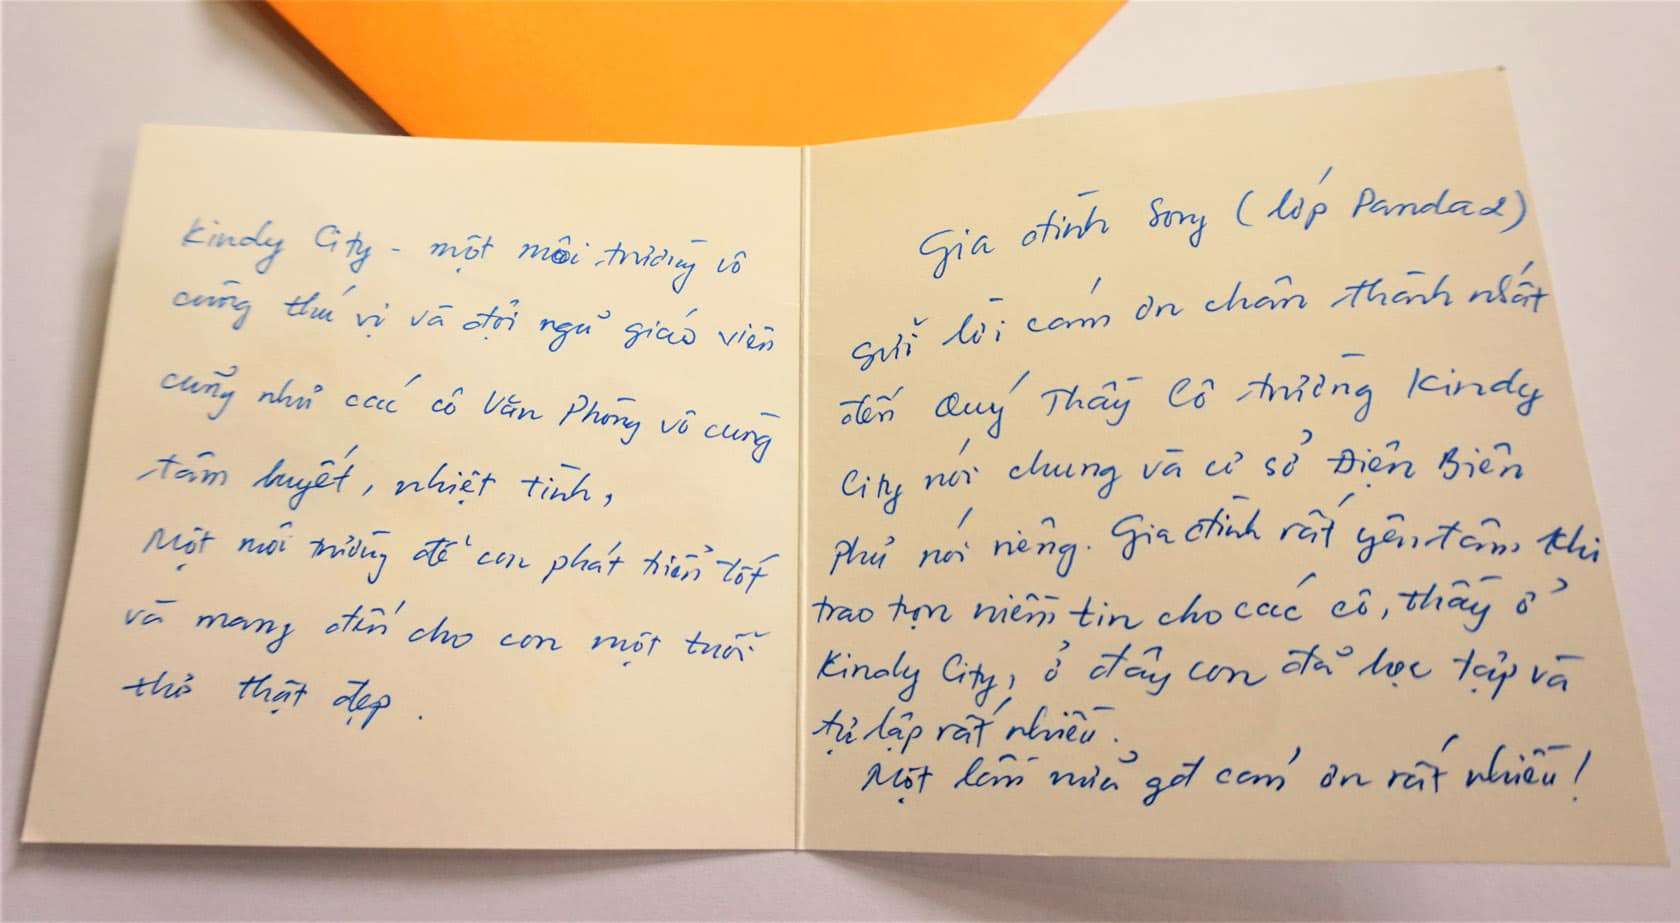 Kindy City - một môi trường vô
cùng thú vị và đội ngũ giáo viên
cũng như các cô Văn Phòng vô cùng
tâm huyết, nhiệt tình,
Một môi trường để con phát triển tốt
và mang đến cho con một tuổi
thơ thật đẹp.
Gia đình Sony (lớp Panda 2)
gửi lời cám ơn chân thành nhất
đến Quý Thầy Cô trường Kindy
City nói chung và cơ sở Điện Biên
Phủ nói riêng. Gia đình rất yên tâm khi
trao trọn niềm tin cho các cô, thầy ở
Kindy City, ở đây con đã học tập và
tự lập rất nhiều.
Một lần nữa gđ cám ơn rất nhiều!